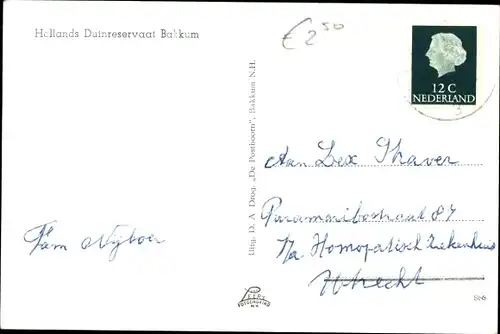 Hollands Duinreservaat Bakkum
€ 2 50
12 C
NEDERLAND
Uitg. D. A Drog. „De Posthoorn", Bakkum N.H.
Aan Lex Thaver
Paramaribostraat 87
p/a. Homopatisch Ziekenhuis
Utrecht
Fam Nijboer